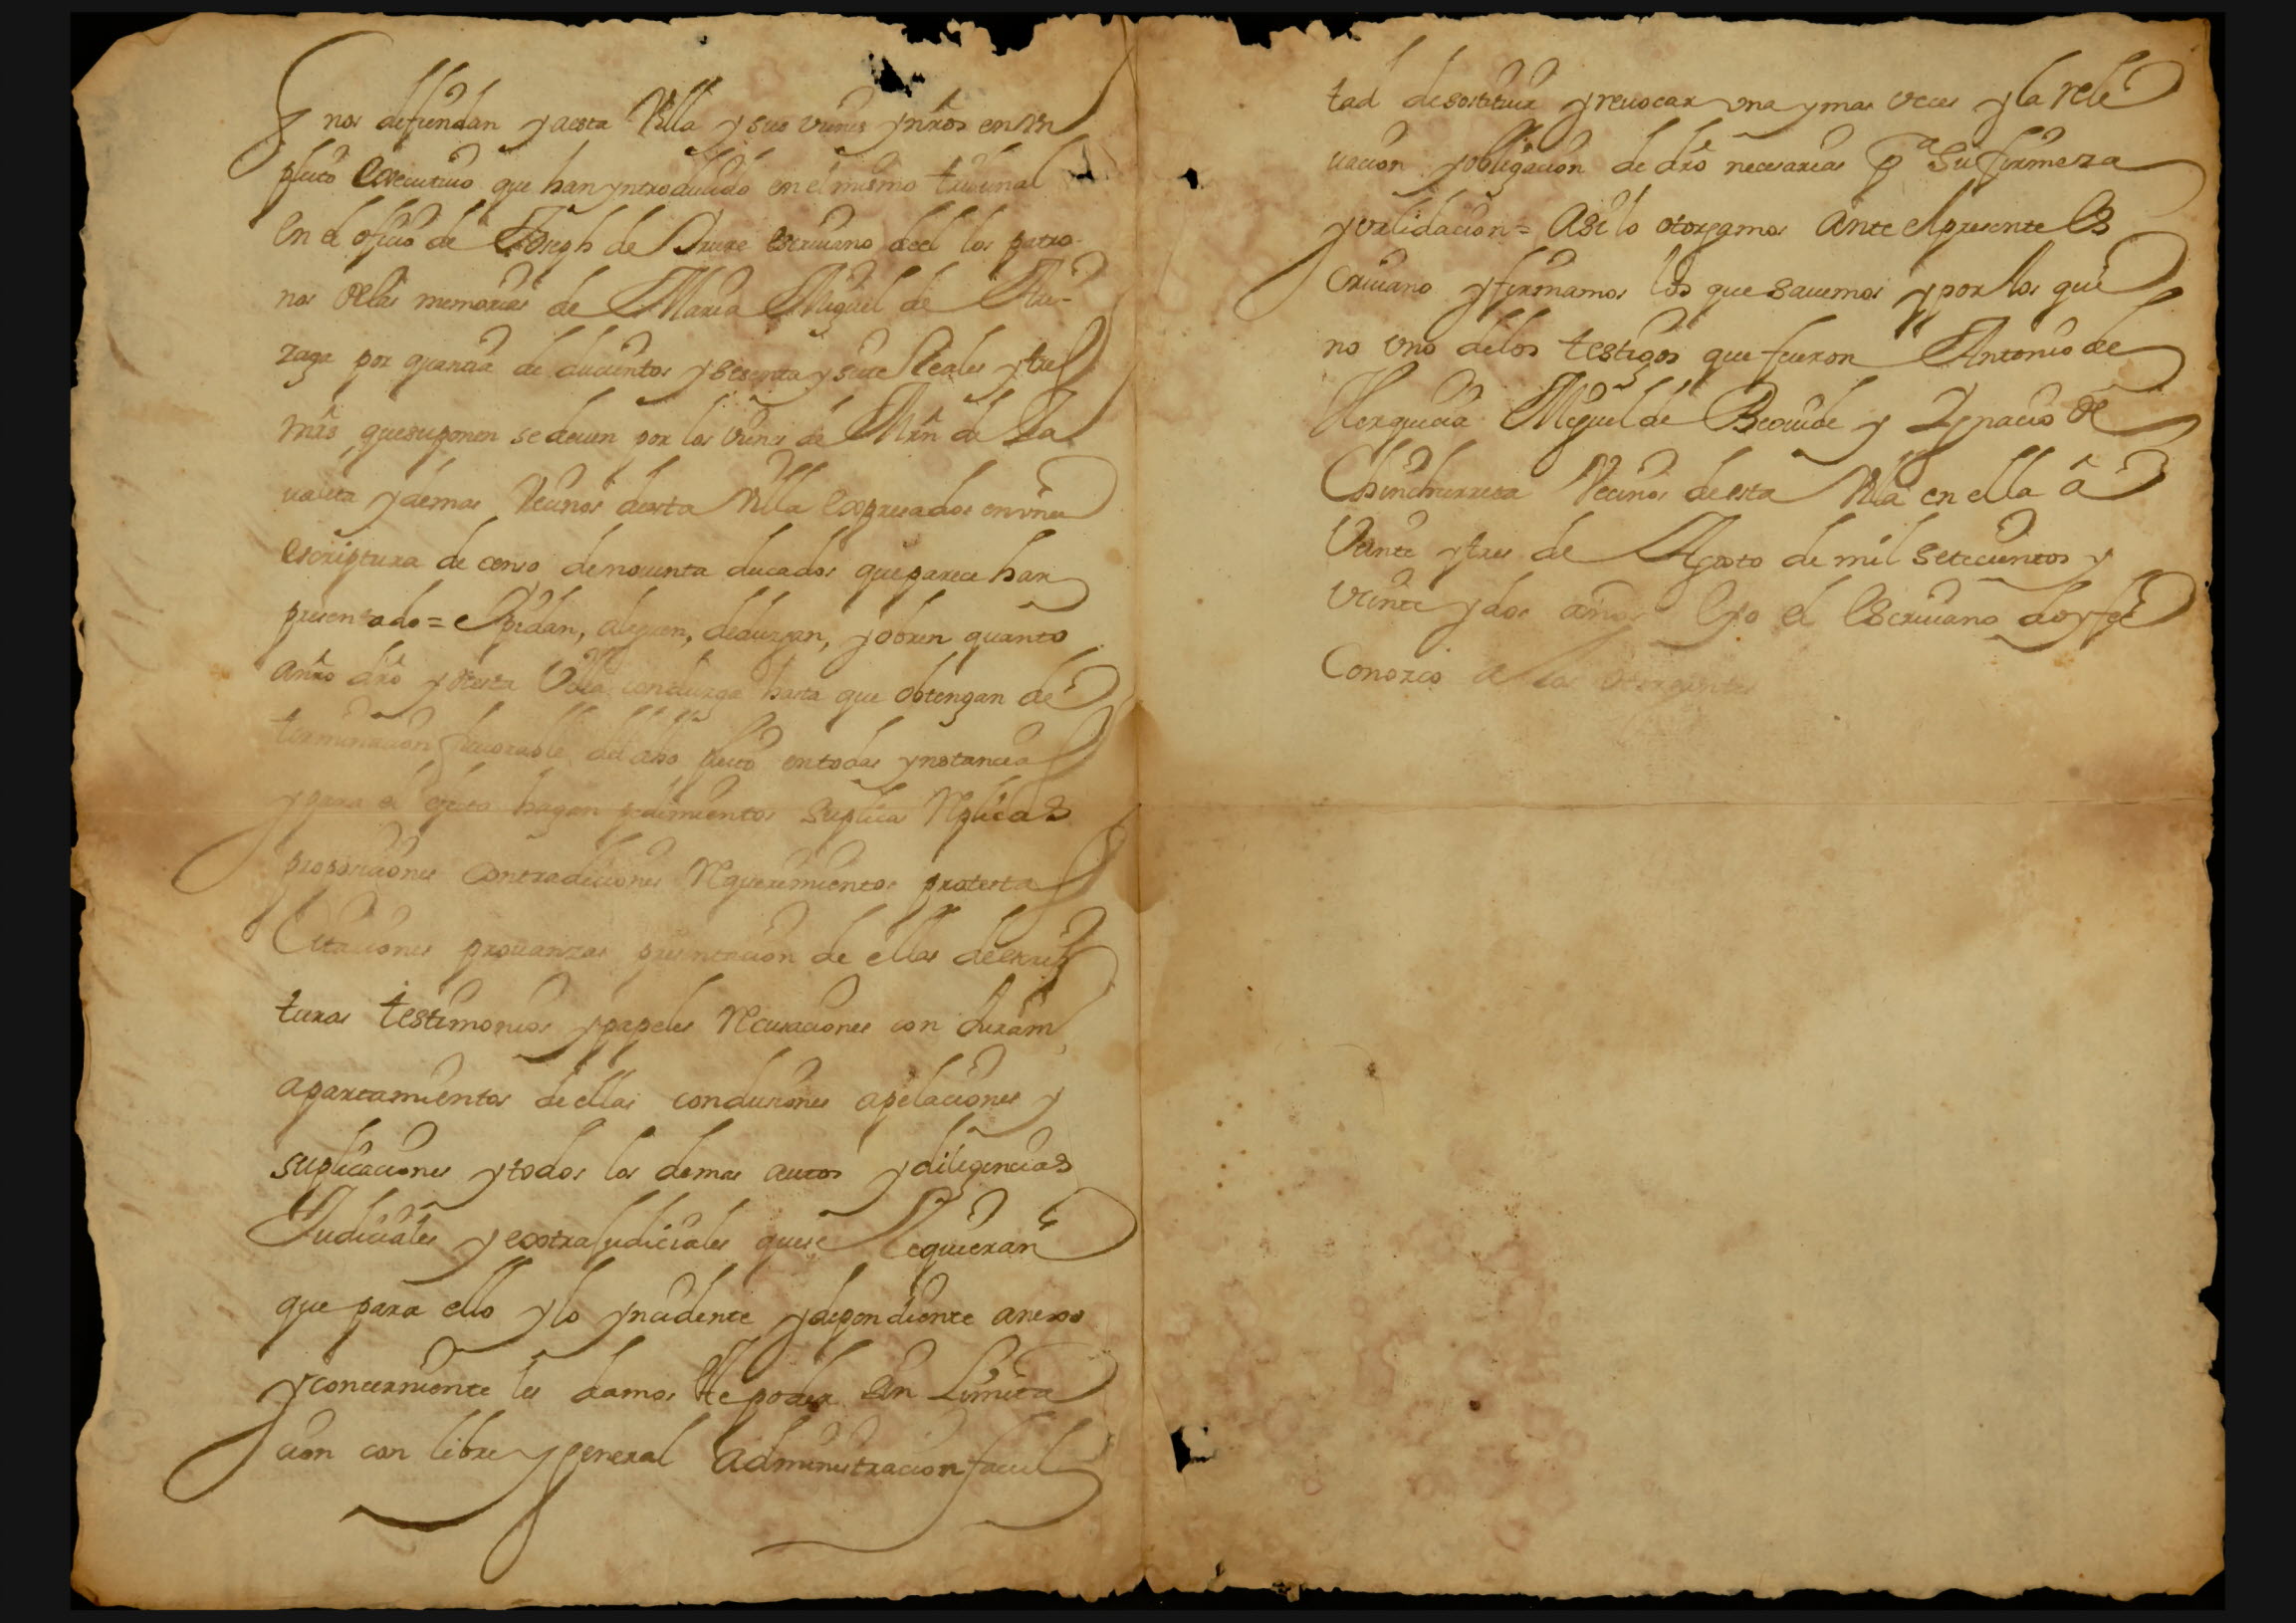 nos defiendan y aesta Villa y sus vecinos y nr̃os en vn
pleito executiuo que han yntroducido en el mismo tribunal
en el oficio de Joseph de escriuano deel los patro-
nos de las memorias de Maria Miguel de
zaga por quantia de ducientos y sesenta y siete Reales y tres
mrs̃ que suponen se deuen por los vienes de Mrñ de Za
ualeta y demas Vecinos desta Villa expresados en vna
escriptura de censo de nouenta ducados que parece han
presentado = Pidan, aleguen, deduzgan, y obren quanto
a nr̃o drõ y desta Villa conduzga hasta que obtengan de
terminacion fauorable del dho pleito en todas ynstancias
y para el efecto hagan pedimientos suplicas Replicas
proposiciones contradiciones Requerimientos protestas
Citaciones prouanzas presentacion de ellas de escrip
turas testimonios y papeles Recusaciones con Juram.
apartamientos de ellas conclusiones apelaciones y
suplicaciones y todos los demas autos y diligencias
Judiciales y extrajudiciales que se Requieran
que para ello y lo yncidente y dependiente anexo
y concerniente les damos este poder sin Limita
cion con libre y general administracion facul
tad de sostituir y reuocar vna y mas veces y la rele
uacion y obligacion de drõ necesarias pª su firmeza
y validacion = Asi lo otorgamos ante el presente es
criuano y firmamos los que sauemos y por los que
no vno de los testigos que fueron Antonio de
Miguel de y Ygnacio de
Chinchurreta Vecinos de esta Villa en ella â
Veinte y tres de Agosto de mil setecientos y
veinte y dos años E yo el escriuano doy fee
Conozco a los otorgantes